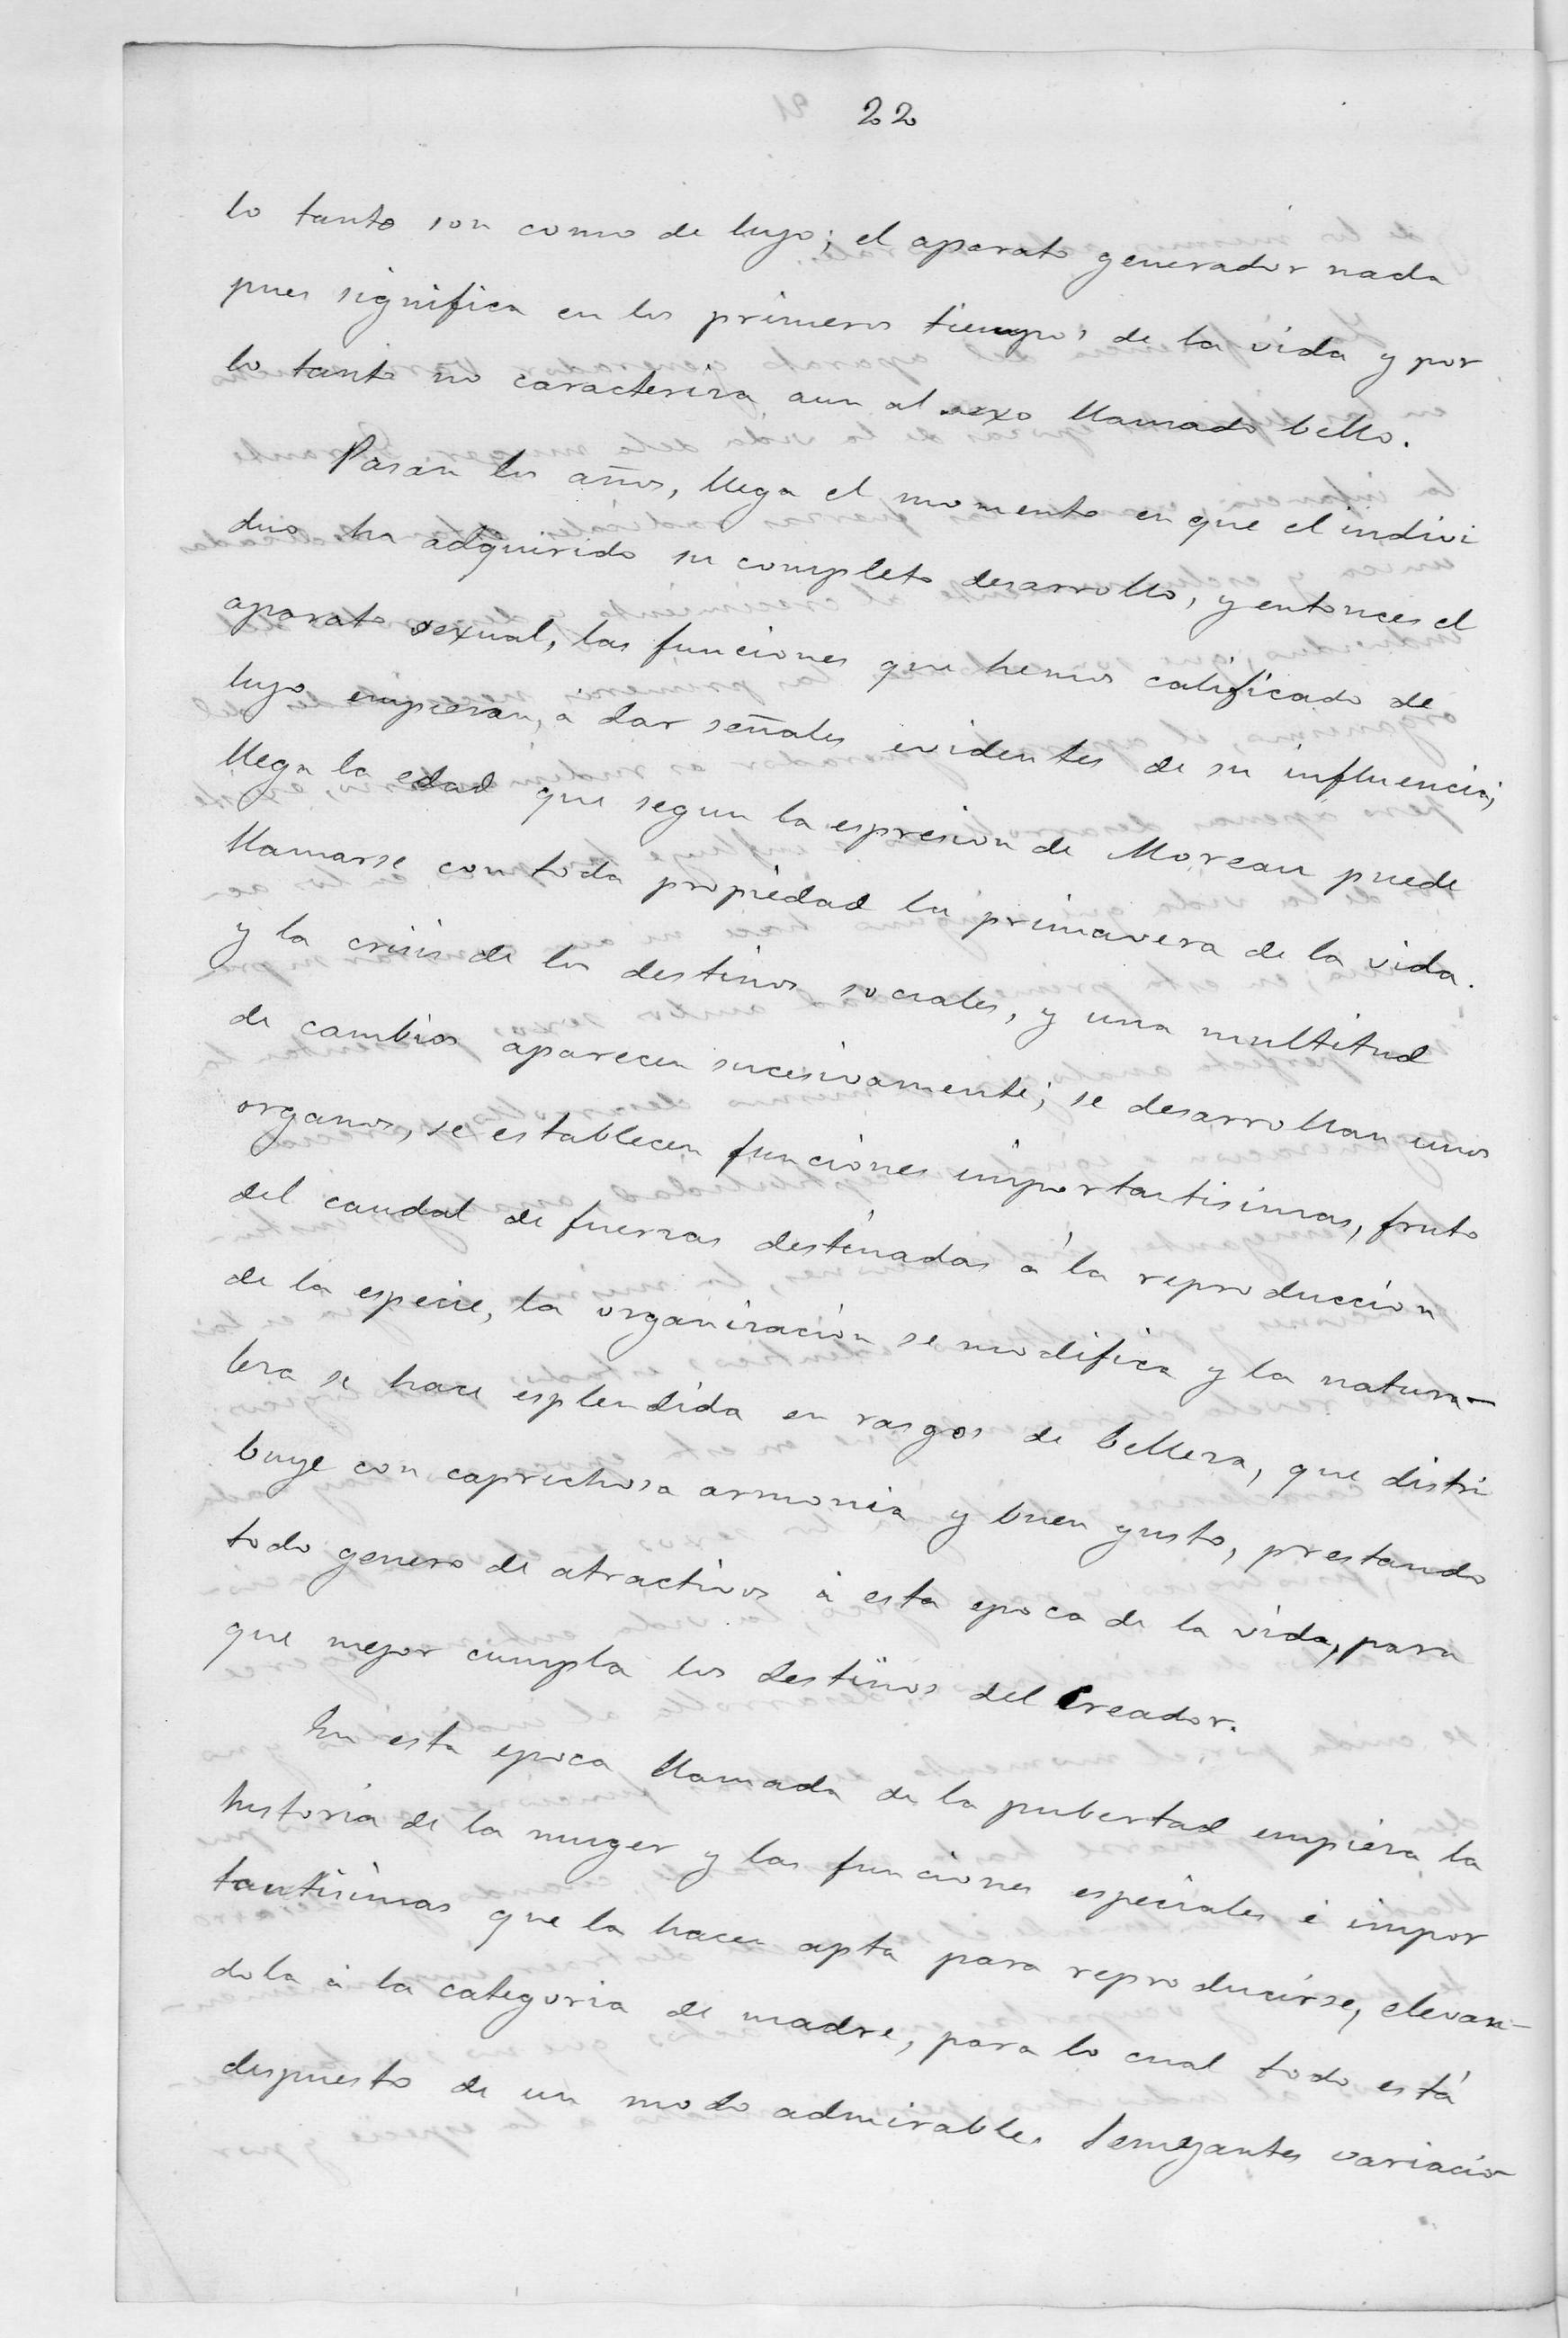 22
lo tanto son como de lujo; el aparato generador nada
pues significa en los primeros tiempos de la vida y por
lo tanto no caracteriza aun al sexo llamado bello.
Pasan los años, llega el momento en que el indivi
duo ha adquirido su completo desarrollo, y entonces el
aparato sexual, las funciones que hemos calificado de
lujo empiezan, á dar señales evidentes de su influencia;
llega la edad que segun la espresion de Moreau puede
llamarse con toda propiedad la primavera de la vida.
y la crisis de los destinos sociales, y una multitud
de cambios aparecen sucesivamente; se desarrollan unos
organos, se establecen funciones importantisimas, fruto
del caudal de fuerzas destinadas á la reproduccion
de la especie, la organizacion se modifica y la natura-
leza se hace esplendida en rasgos de belleza, que distri
buye con caprichosa armonia y buen gusto, prestando
todo genero de atractivos á esta epoca de la vida, para
que mejor cumpla los destinos del Creador.
En esta epoca llamada de la pubertad empieza la
historia de la muger y las funciones especiales é impor
tantisimas que la hacen apta para reproducirse, elevan-
dola á la categoria de madre, para lo cual todo está
dispuesto de un modo admirable. Semejantes variacio-